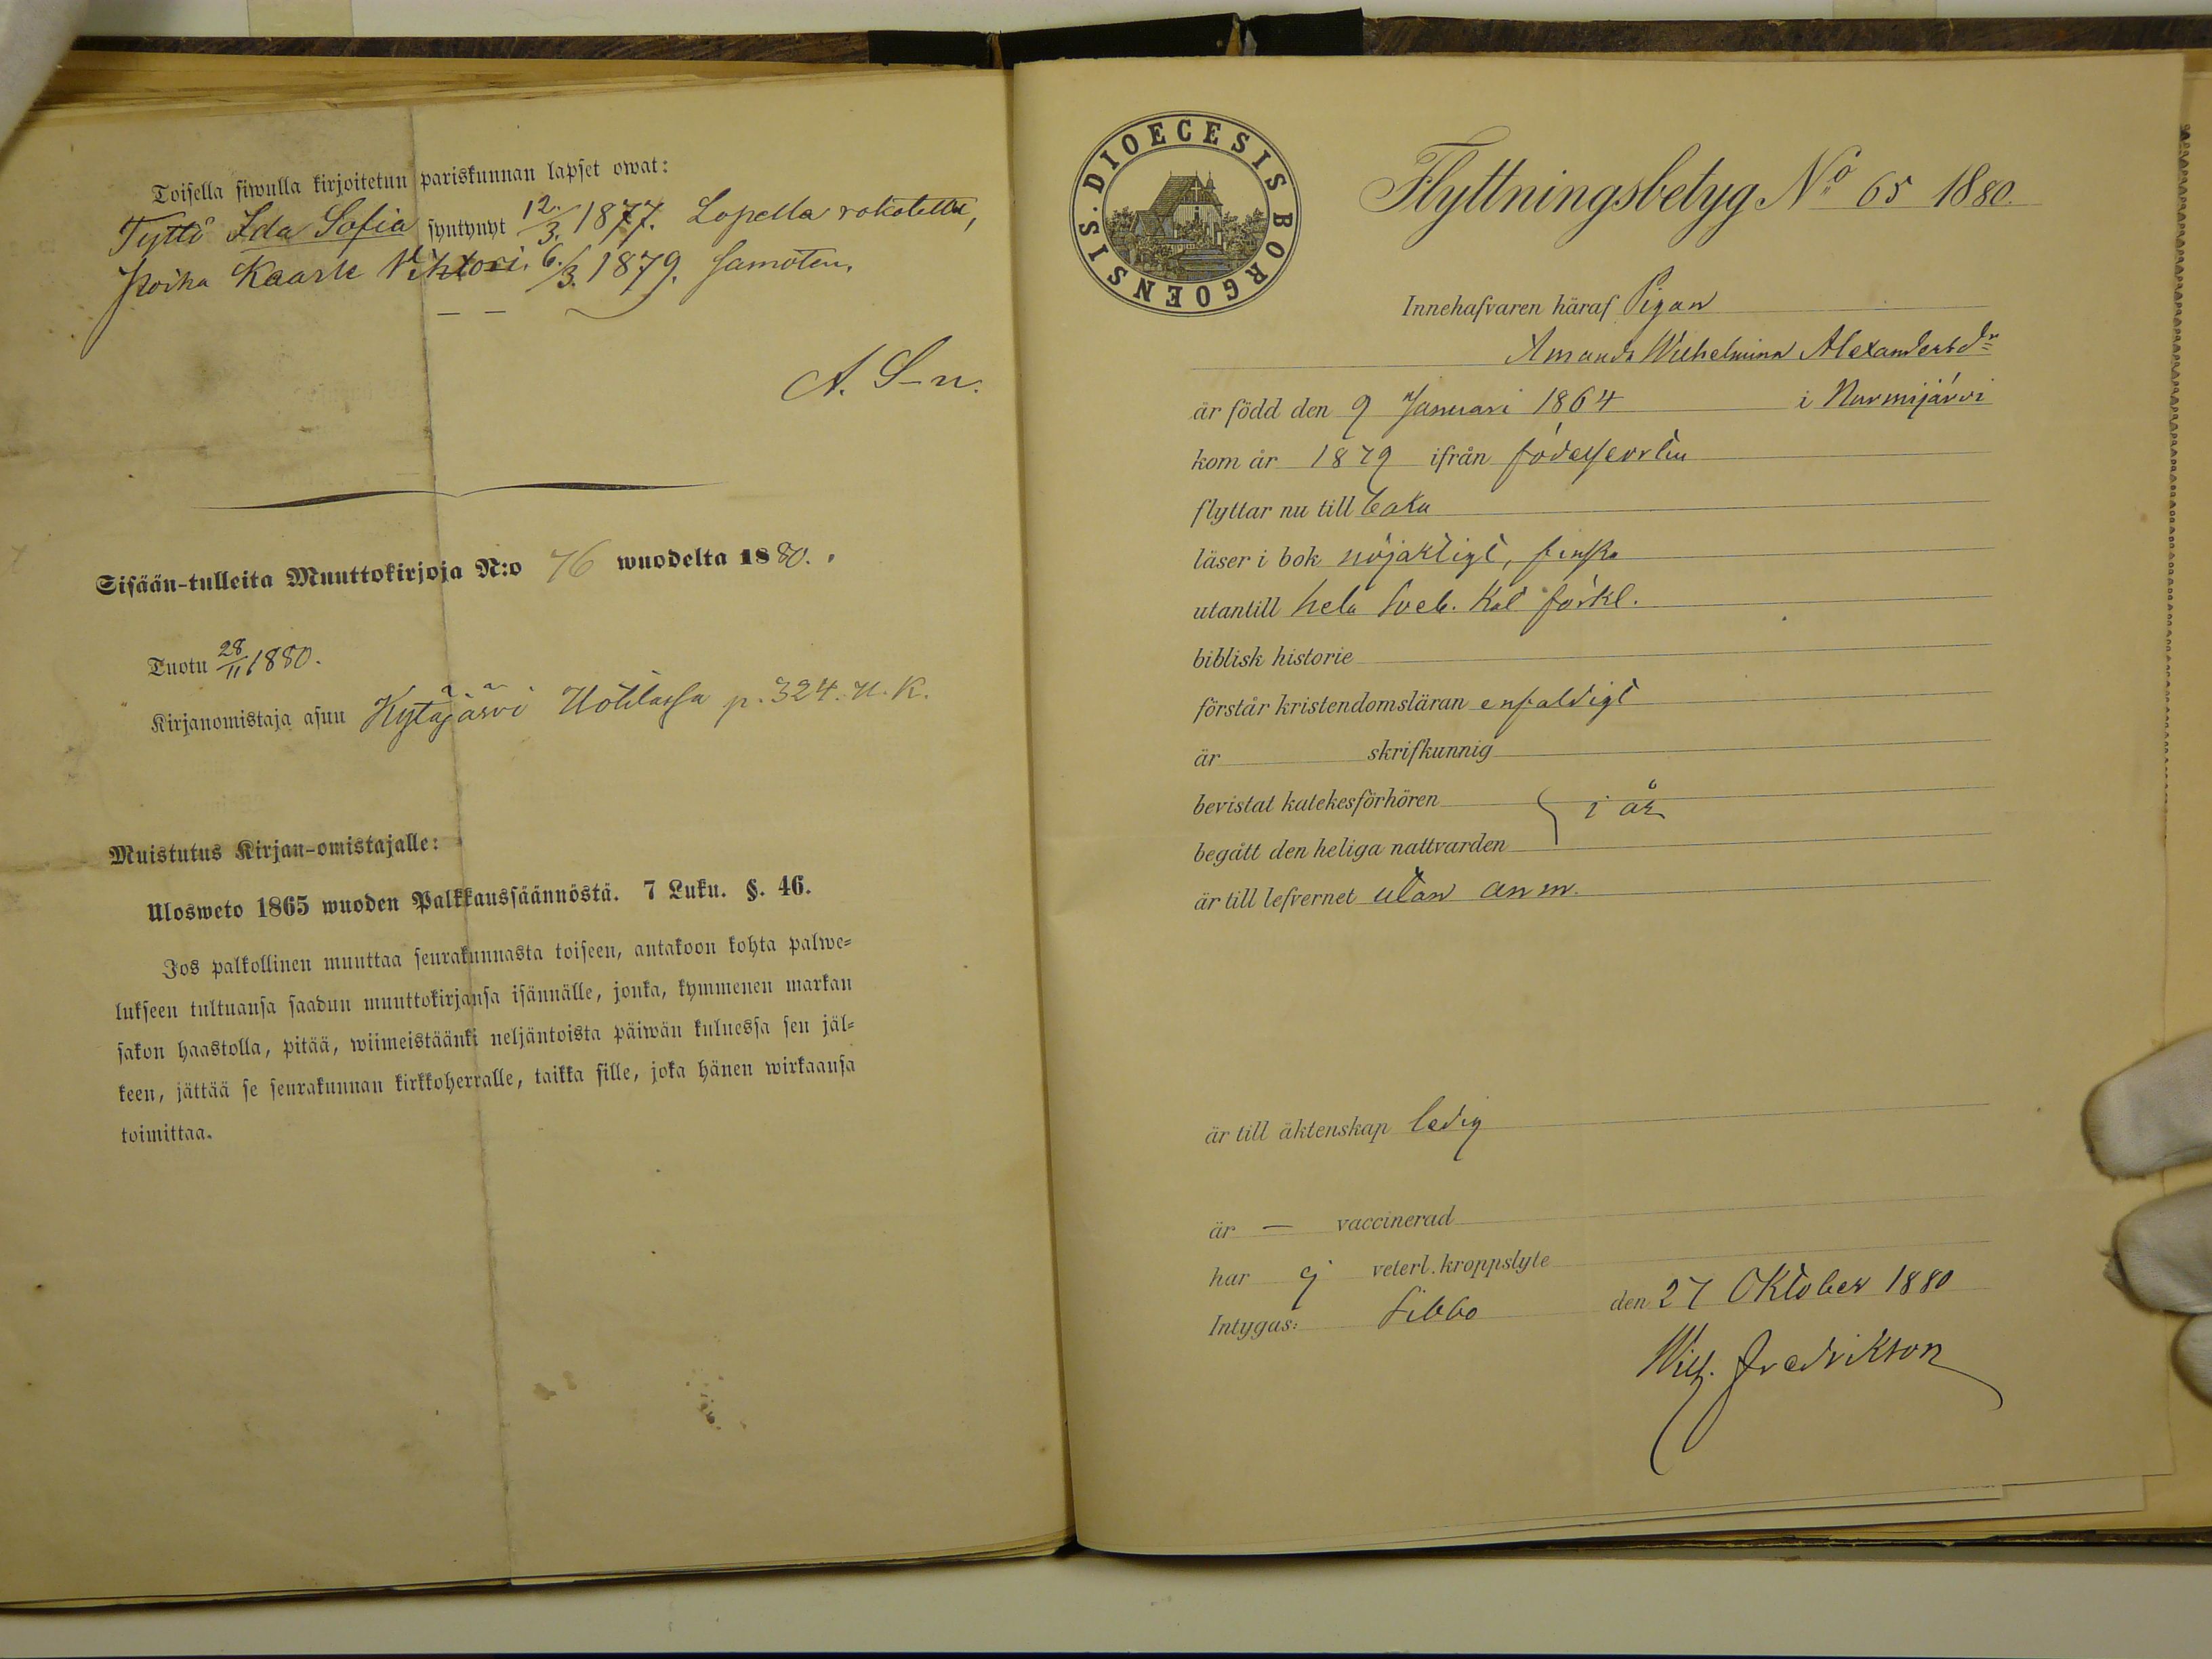 Toisella siwulla kirjoitetun pariskunnan lapset owat:
Tyttö Ida Sofia syntynyt 12./3. 1877. Lopella rokotettu,
Poika Kaarle Vihtori. 6./3. 1879. Samoten.
A. S-n.
Sisään-tulleita Muuttokirjoja N:o 76 wuodelta 1880.
Tuotu 28/11 1880.
Kirjanomistaja asuu Kytäjärvi p. 324. U. K.
Muistutus Kirjan-omistajalle:
Ulosweto 1865 wuoden Palkkaussäännöstä. 7 Luku. §. 46.
Jos palkollinen muuttaa seurakunnasta toiseen, antakoon kohta palwe=
lukseen tultuansa saadun muuttokirjansa isännälle, jonka, kymmenen markan
sakon haastolla, pitää, wiimeistäänki neljäntoista päiwän kuluessa sen jäl=
keen, jättää se seurakunnan kirkkoherralle, taikka sille, joka hänen wirkaansa
toimittaa.
DIOECESIS BORGOENSIS.
Flyttningsbetyg No 65 1880.
Innehafvaren häraf Pigan
Amanda Wilhelmina Alexandersdr
är född den 9 Januari 1864 i Nurmijärvi
kom år 1879 ifrån födelseorten
flyttar nu till baka
läser i bok nöjaktigt, finska
utantill hela Sveb. Kat förkl.
biblisk historie
förstår kristendomsläran enfaldigt
är skrifkunnig
bevistat katekesförhören } i år
begått den heliga nattvarden
är till lefvernet utan anm.
är till äktenskap ledig
är — vaccinerad
har ej veterl. kroppslyte
Intygas: Sibbo den 27 Oktober 1880
Wilh. Fredrikson